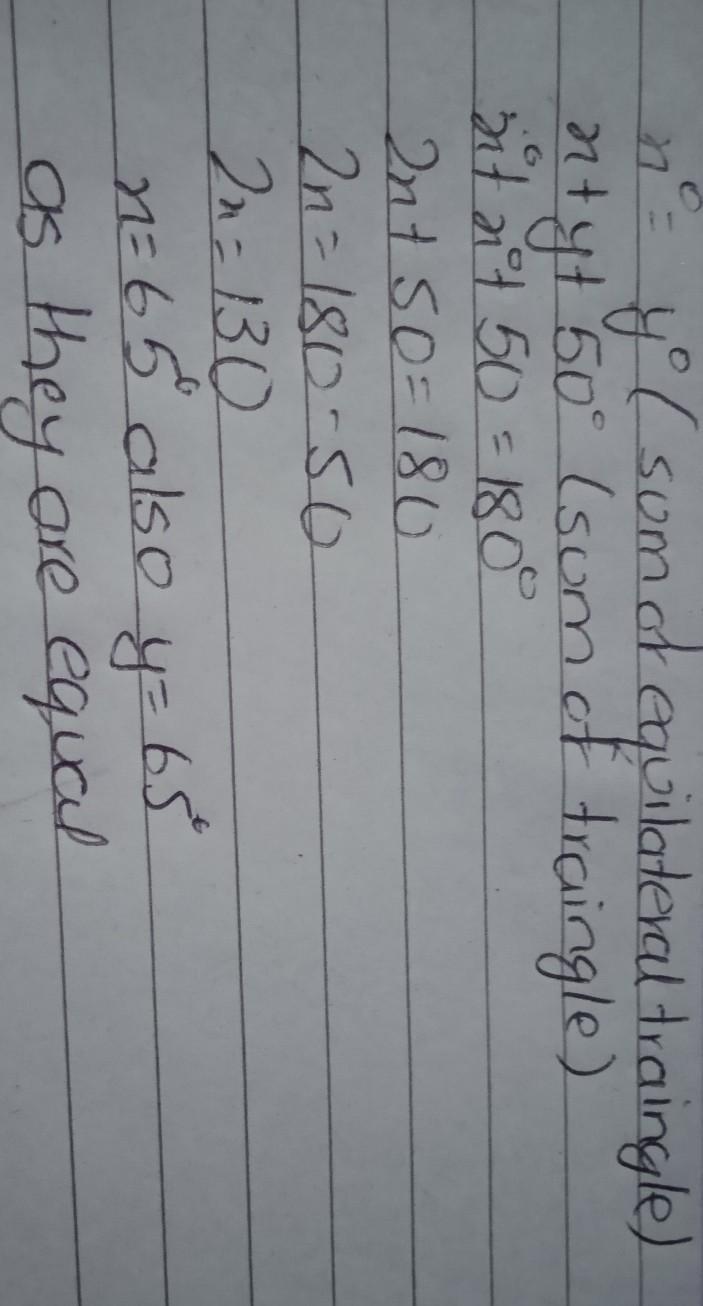 x° = y° (sum of equilateral traingle)
x + y + 50° (sum of traingle)
x° + x° + 50 = 180°
2x + 50 = 180
2x = 180 - 50
2x = 130
x = 65° also y = 65°
as they are equal